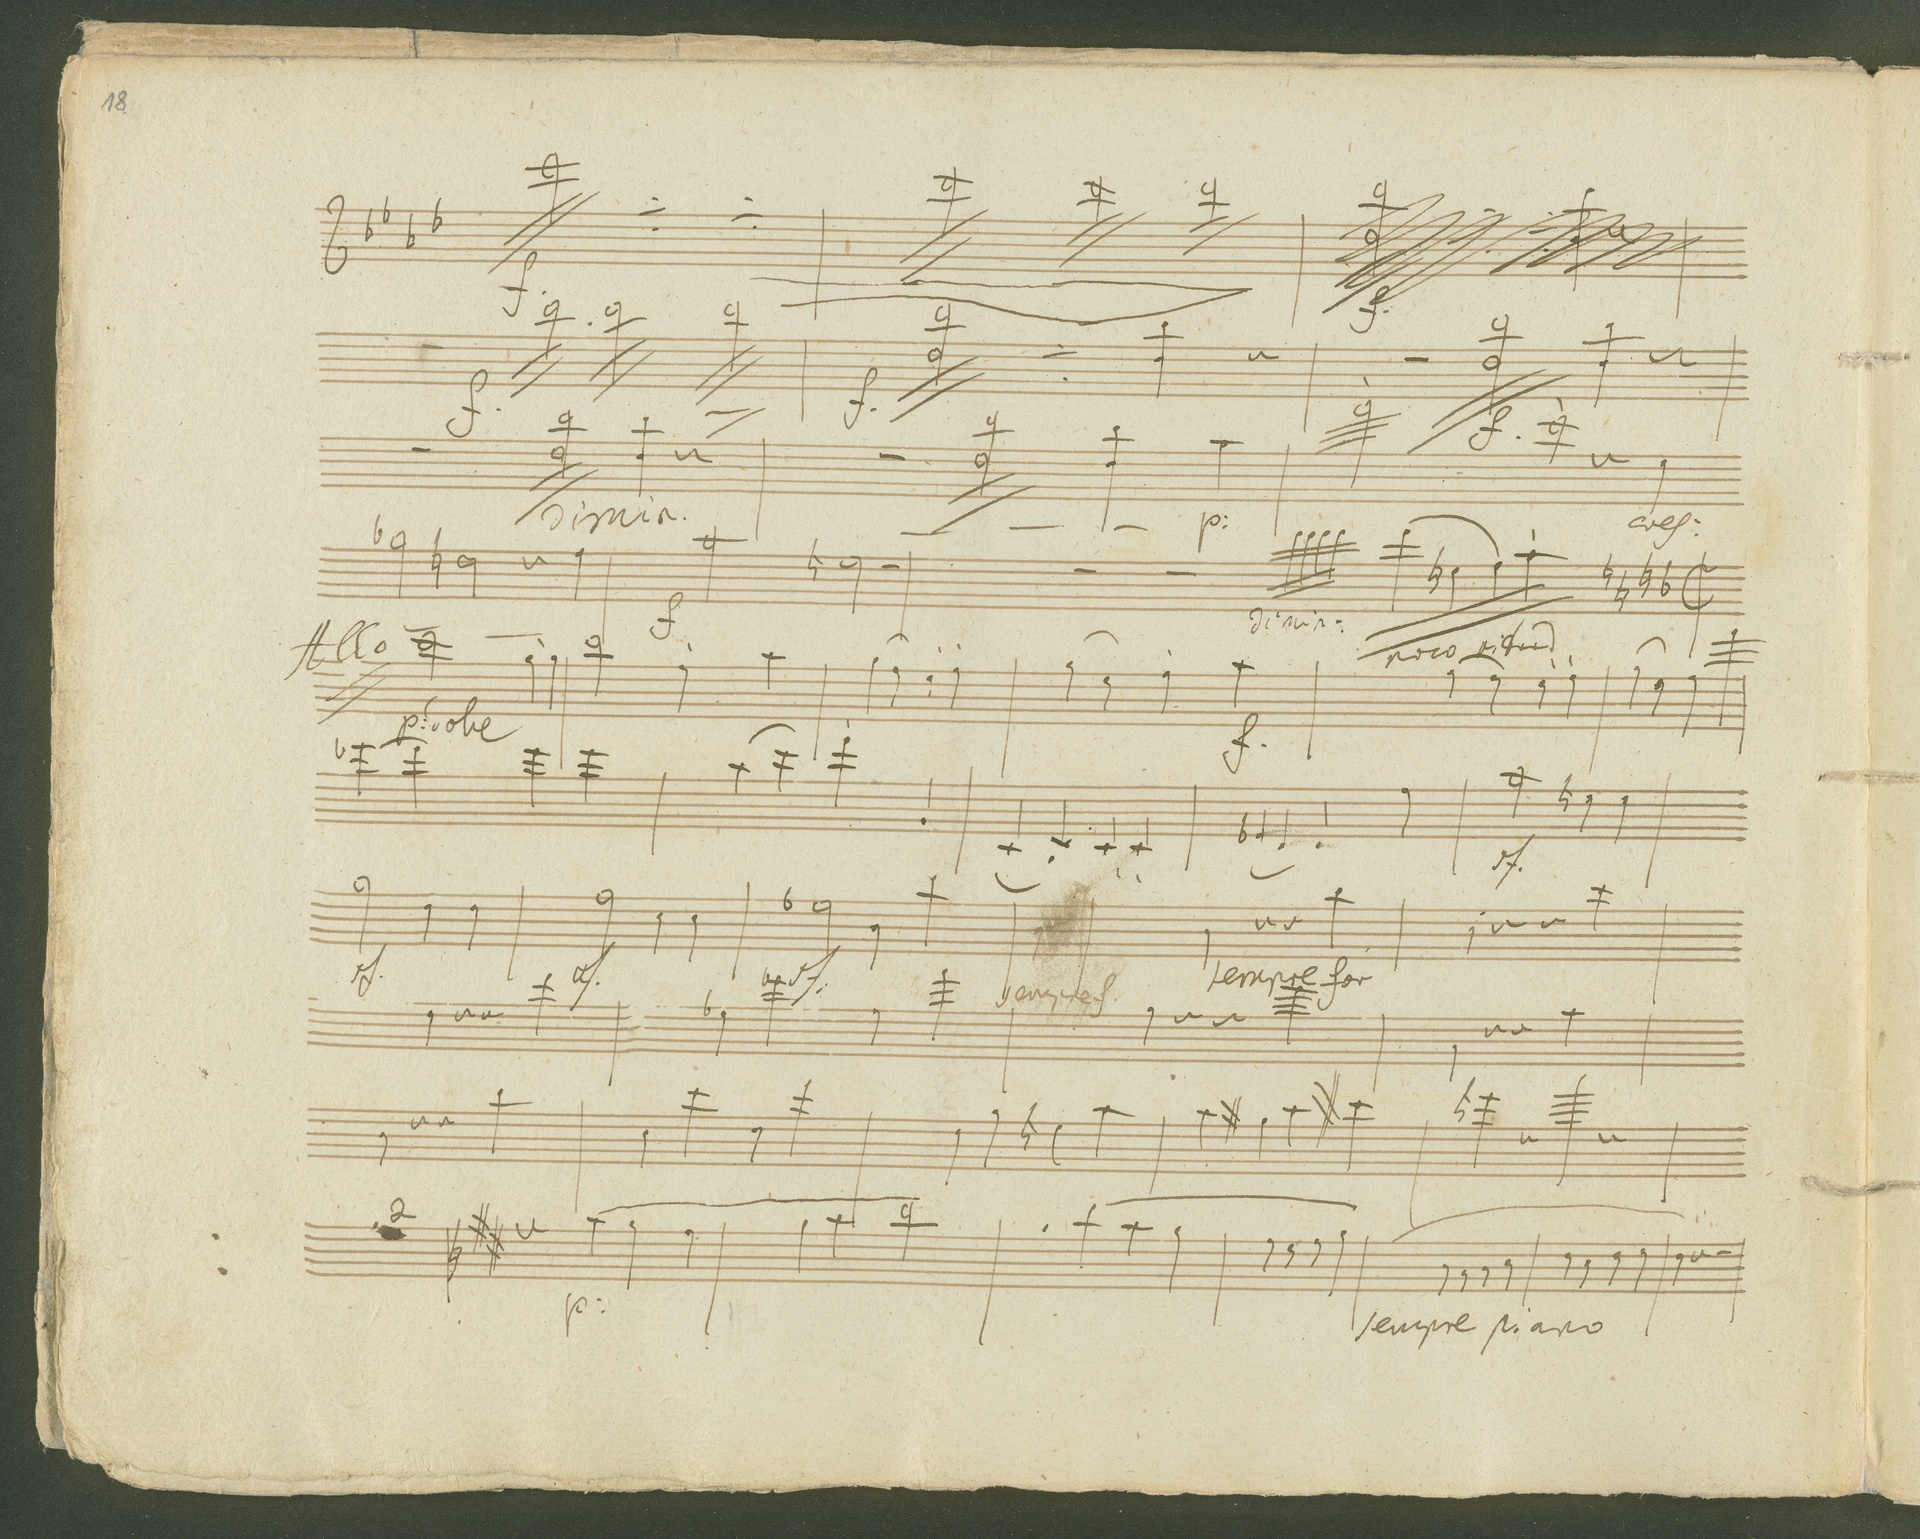 18
f. f.
f. f. f.
dimin. p: cresc:
f dimin: poco ritard
Allo
p: f.
sf.
sf. sf. sf. sempre f sempre for
2
p: sempre piano